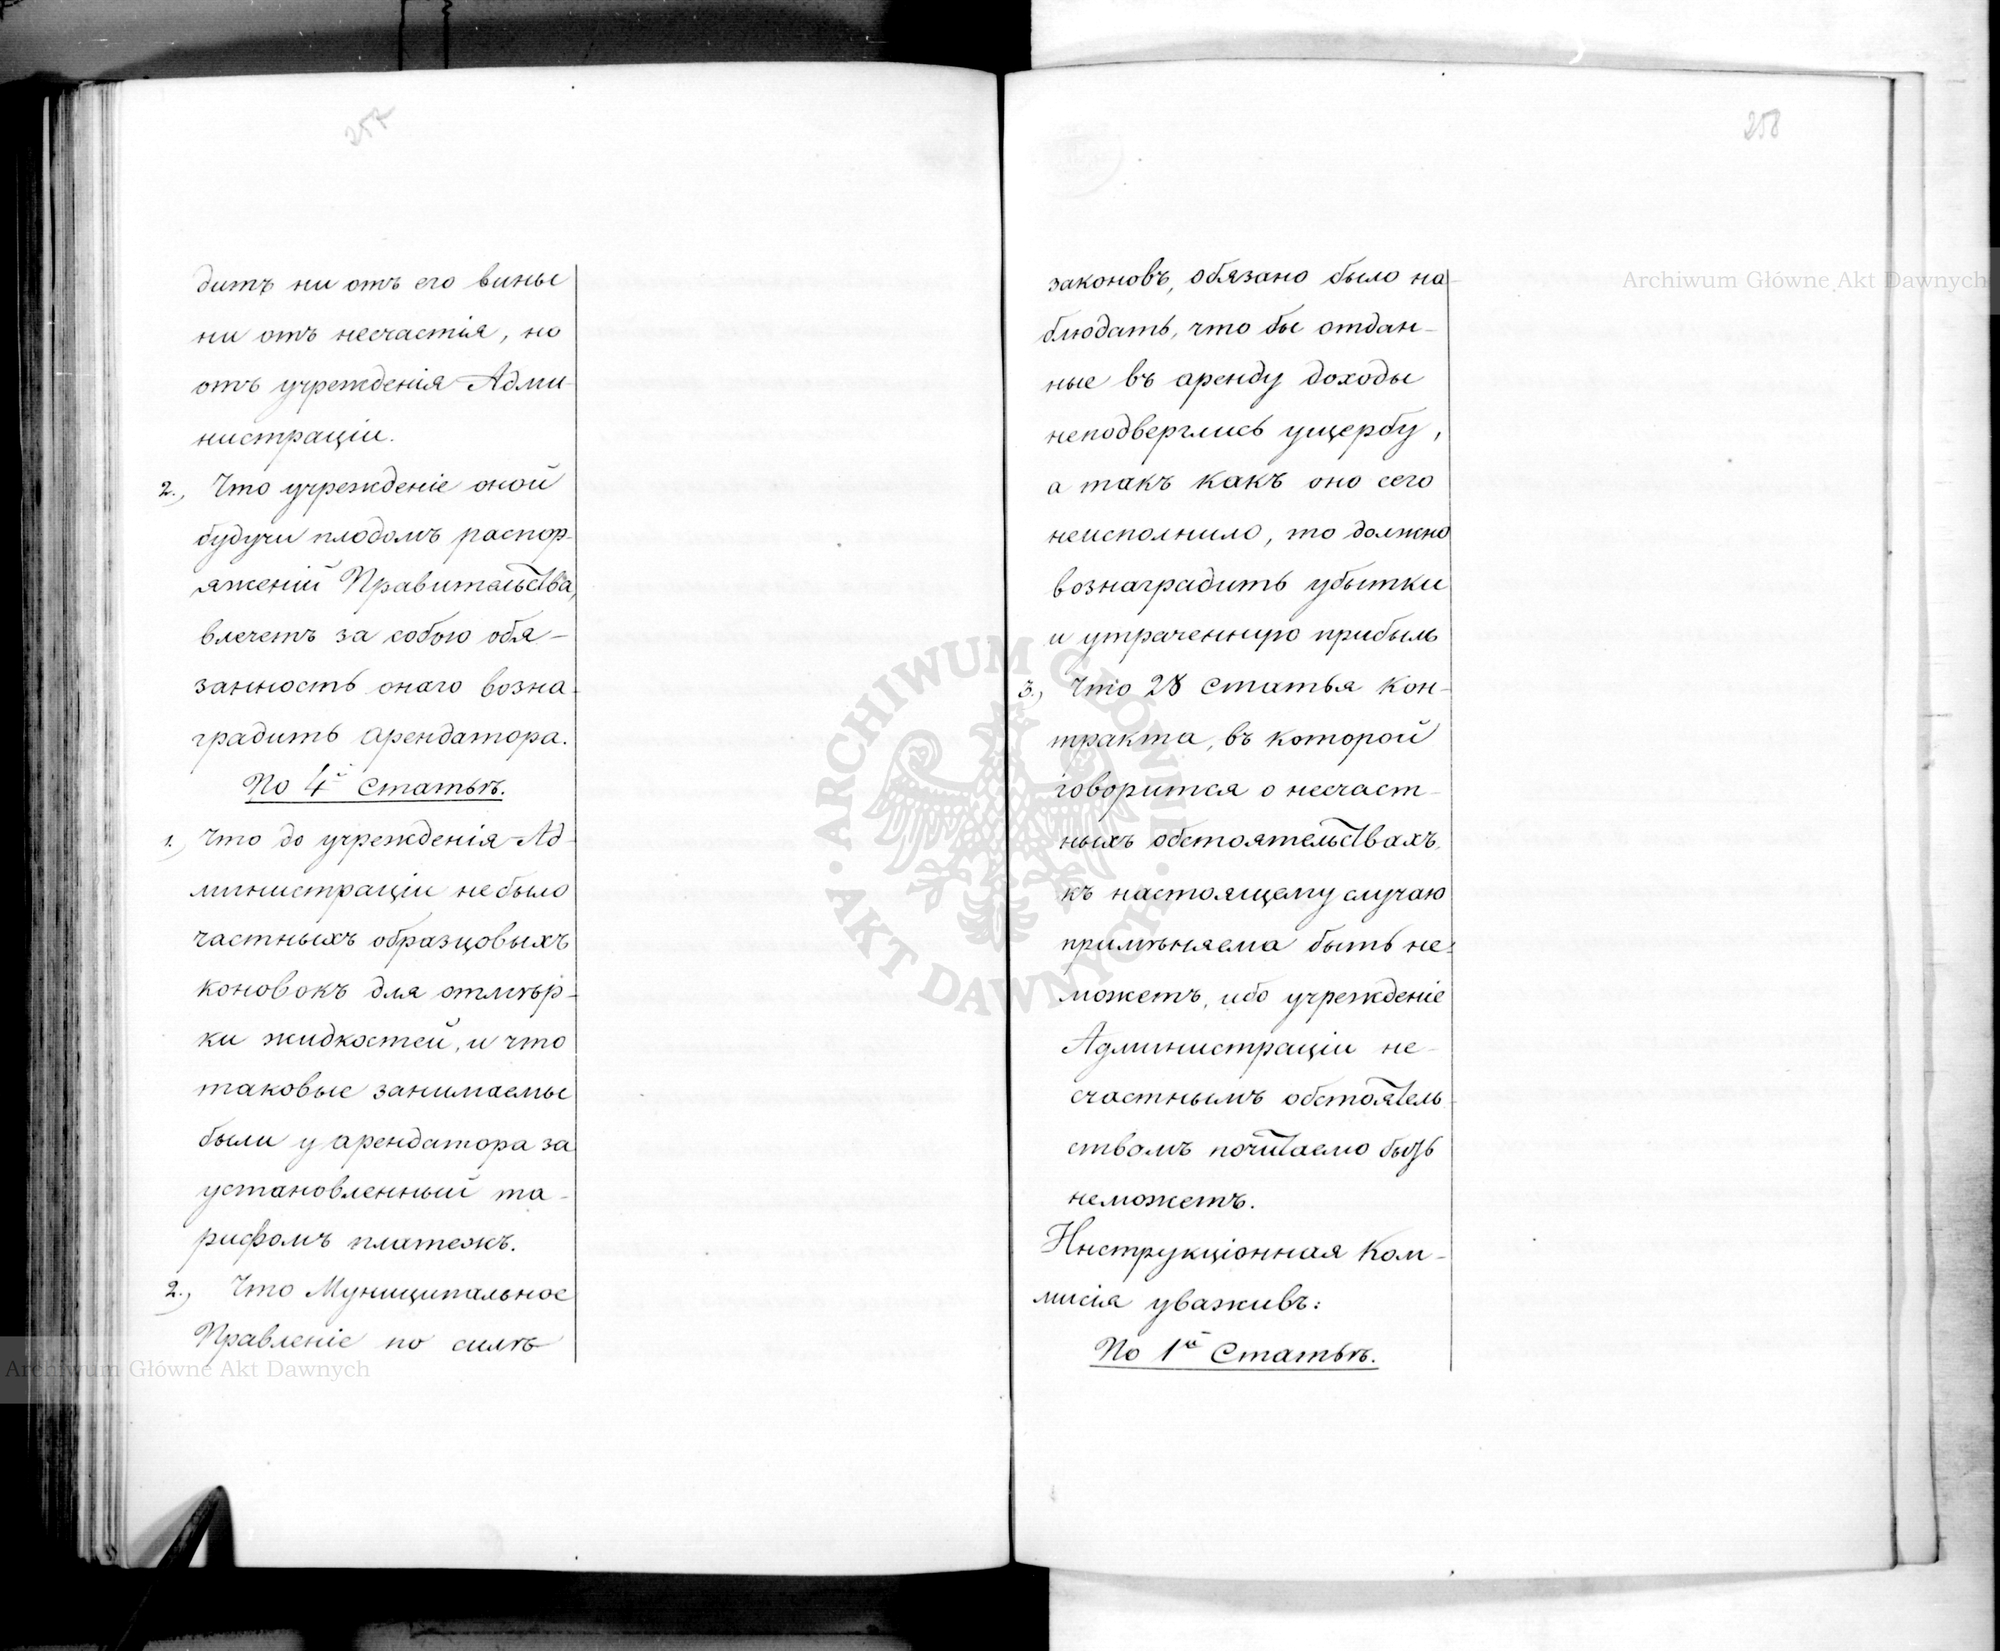 257
дитъ ни отъ его вины
ни отъ несчастія, но
отъ учрежденія Адми-
нистраціи.
2., Что учрежденіе оной
будучи плодомъ распор-
яженій Правительства,
влечетъ за собою обя-
занность онаго возна-
градить арендатора.
По 4й Статьѣ.
1., Что до учрежденія Ад-
министраціи небыло
частныхъ образцовыхъ
коновокъ для отмѣр-
ки жидкостей, и что
таковые занимаемы
были у арендатора за
установленный та-
рифомъ платежъ.
2., Что Муниципальное
Правленіе по силѣ
258
законовъ, обязано было на-
блюдать, что бы отдан-
ные въ аренду доходы
неподверглись ущербу,
а такъ какъ оно сего
неисполнило, то должно
вознаградить убытки
и утраченную прибыль
3., Что 28 Статья Кон-
тракта, въ которой
говорится о несчаст-
ныхъ обстоятельствахъ,
къ настоящему случаю
примѣняема быть не-
можетъ, ибо учрежденіе
Администраціи не-
счастнымъ обстоятель-
ствомъ почитаемо быть
неможетъ.
Инструкціонная Ком-
мисія уваживъ:
По 1й Статьѣ.
Archiwum Główne Akt Dawnych
Archiwum Główne Akt Dawnych
ARCHIWUM GŁÓWNE AKT DAWNYCH